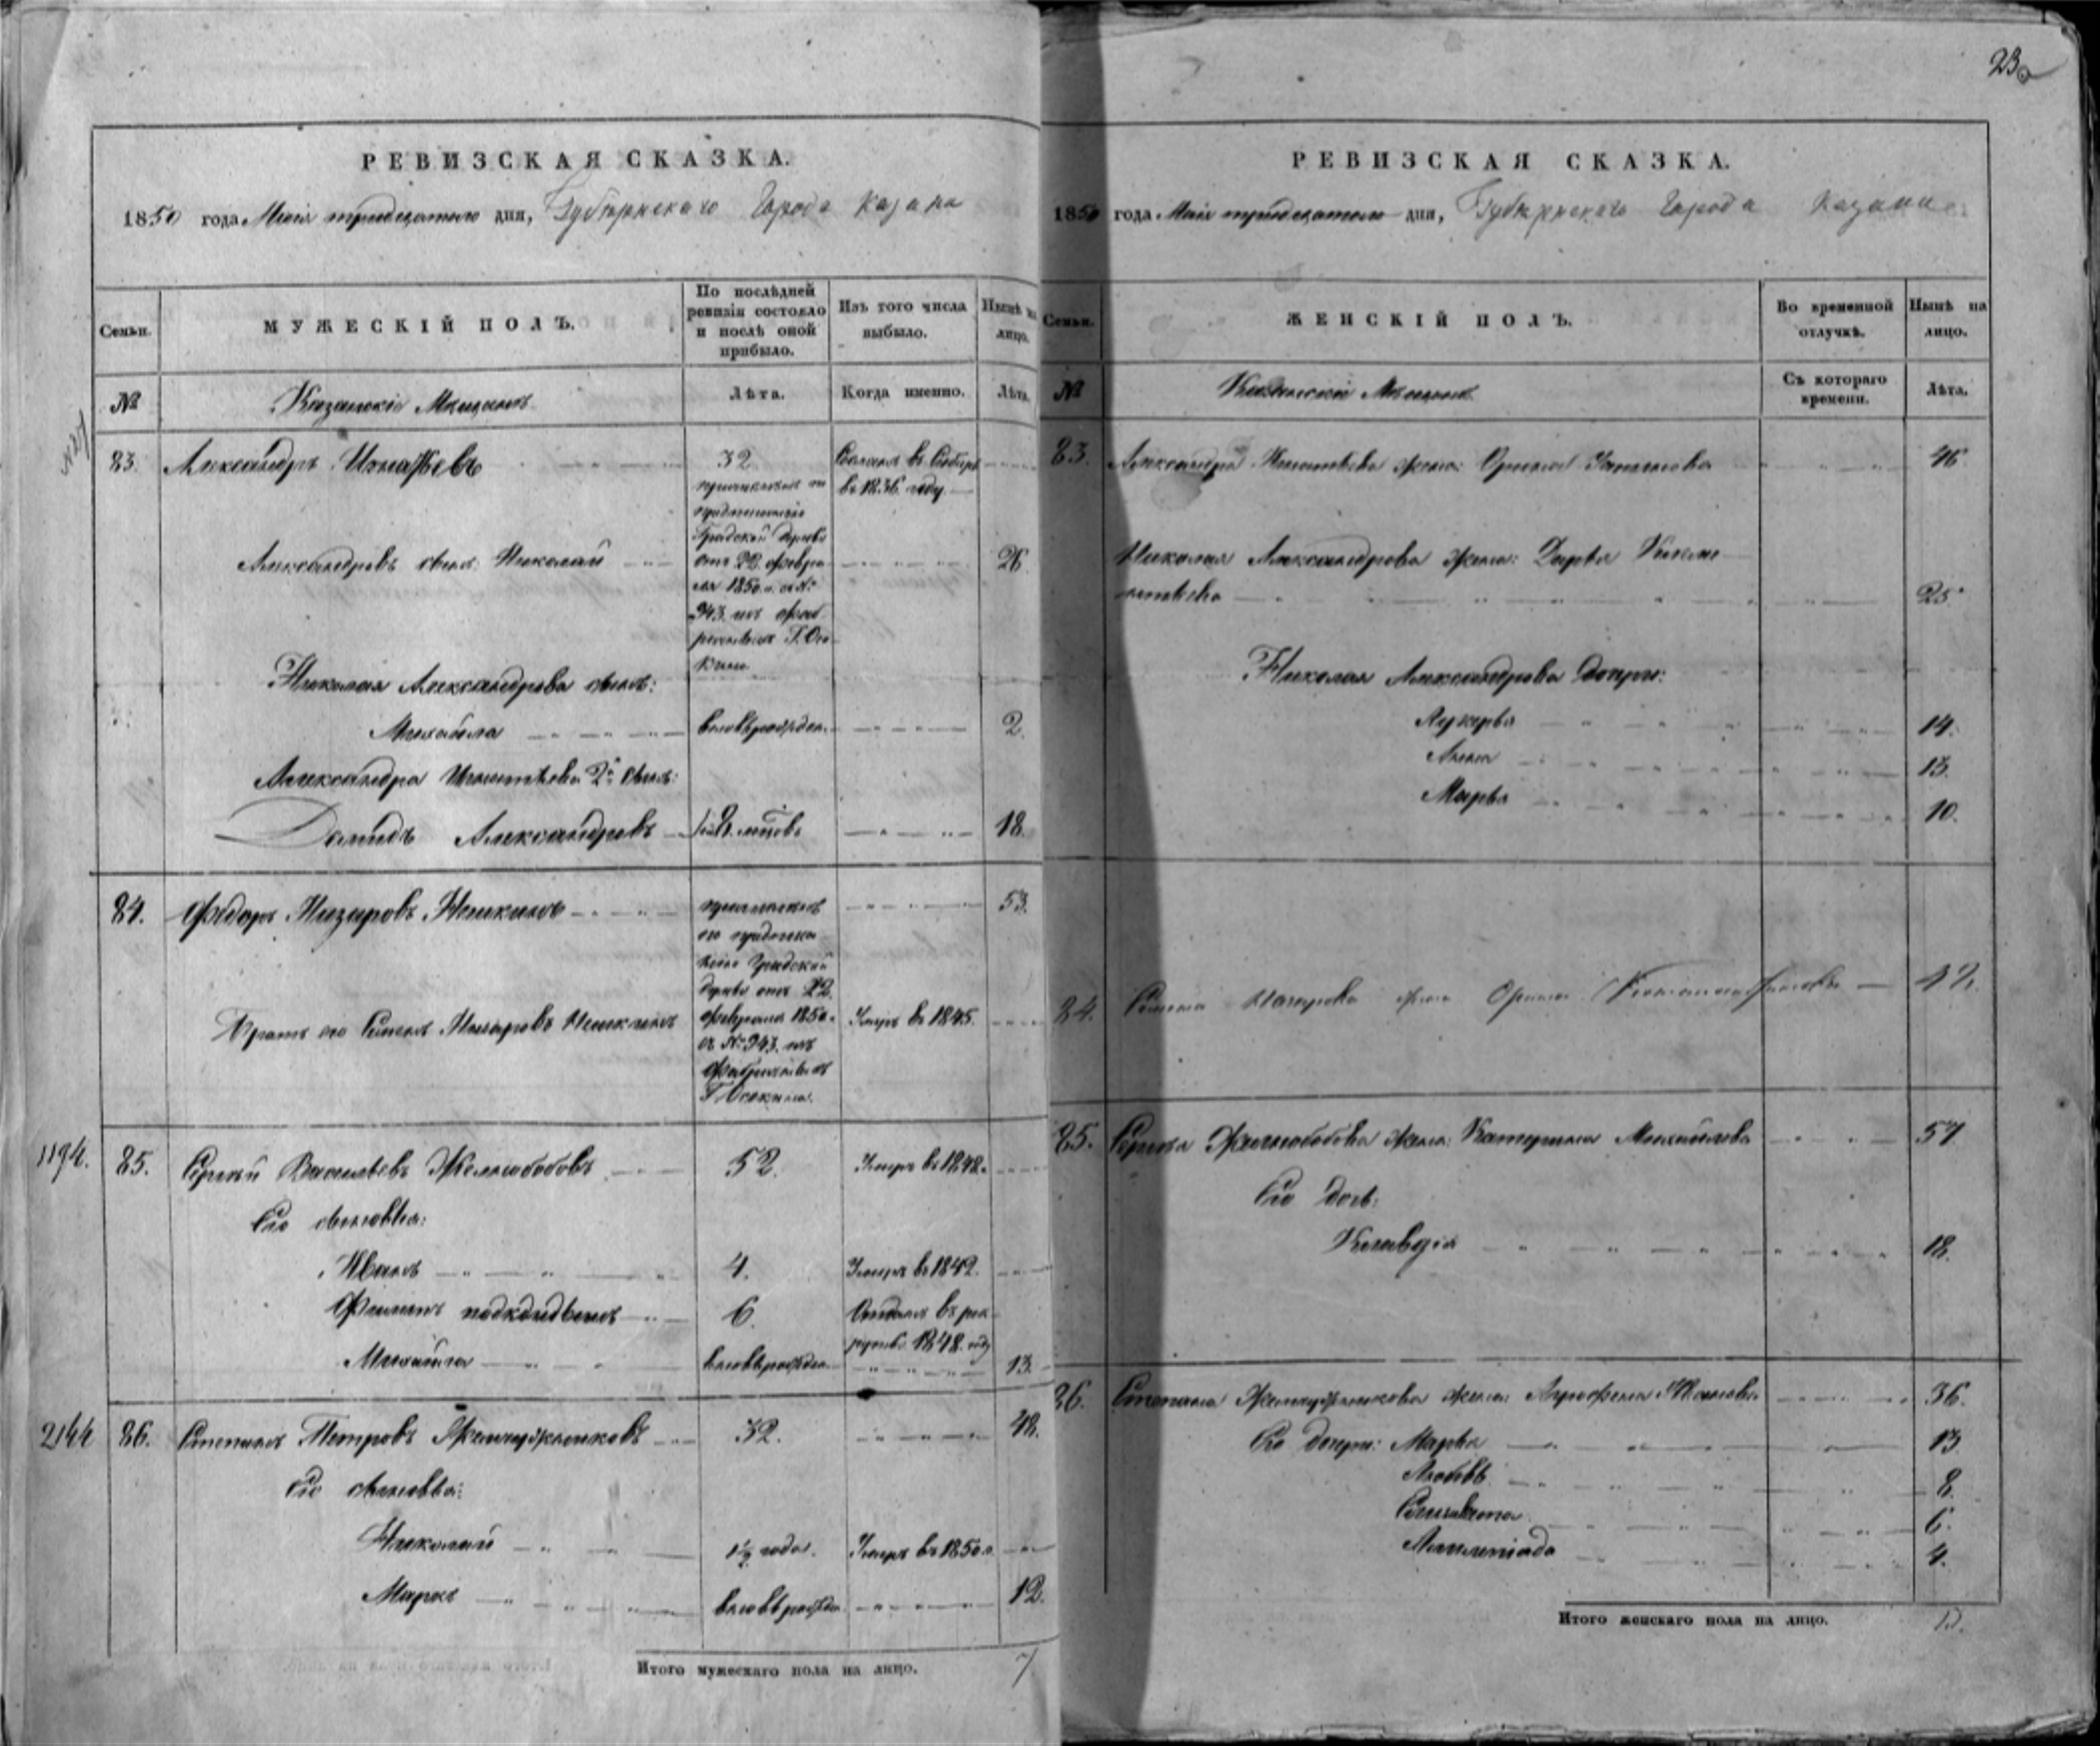 23
РЕВИЗСКАЯ СКАЗКА.
1850 года Маія тридцатаго дня, Губернскаго Города Казани
Семьи.
МУЖЕСКІЙ ПОЛЪ.
По послѣдней ревизіи состояло и послѣ оной прибыло.
Изъ того числа выбыло.
Нынѣ на лицо.
№
Казанскіе Мещане
Лѣта.
Когда именно.
Лѣта.
83. Александръ Игнатьевъ 32 Сосланъ въ Сибирь
въ 1836 году
причисленъ по
предписанію
Градской Думы
Александровъ сынъ Николай отъ 22 февра- 26
ля 1850 г. за №
943 изъ фаб
Николая Александрова сынъ:
Михайла вновь рожден. 2.
Александра Игнатьева 2й сынъ:
Александровъ 18.
84. Федоръ Назаровъ причисленъ 53.
по предписа
нію Градской
Думы отъ 22
Братъ его Семенъ Назаровъ февраля 1850 Умеръ въ 1845.
за № 943 изъ
1194. 85. Сергѣй Васильевъ Желнобобовъ 52. Умеръ въ 1848.
Его сыновья:
Иванъ 4. Умеръ въ 1842.
Филипъ подкидышъ 6. Отданъ въ рек
руты въ 1848 году
Михайла вновь рожден. 13.
2144 86. Степанъ Петровъ Жемчужниковъ 32. 48.
Его сыновья:
Николай 1½ года. Умеръ въ 1850 г.
Марко вновь рожден 12.
Итого мужескаго пола на лицо. 7
РЕВИЗСКАЯ СКАЗКА.
1850 года Маія тридцатаго дня, Губернскаго Города Казани
Семьи.
ЖЕНСКІЙ ПОЛЪ.
Во временной отлучкѣ.
Нынѣ на лицо.
№
Казанскіе Мещане
Съ котораго времени.
Лѣта.
83. Александра Игнатьева жена: 46
Николая Александрова жена: Дарья
25
Николая Александрова дочери:
Лукерья 14.
Анна 13.
Марья 10.
84. Семена Назарова жена 42.
85. Сергѣя Желнобобова жена: Катерина Михайлова 57
Его дочь:
Клавдія 18.
86. Степана Жемчужникова жена: Аграфена Иванова 36.
Его дочери: Марья 13
Любовь 8.
Елизавета 6.
4.
Итого женскаго пола на лицо.